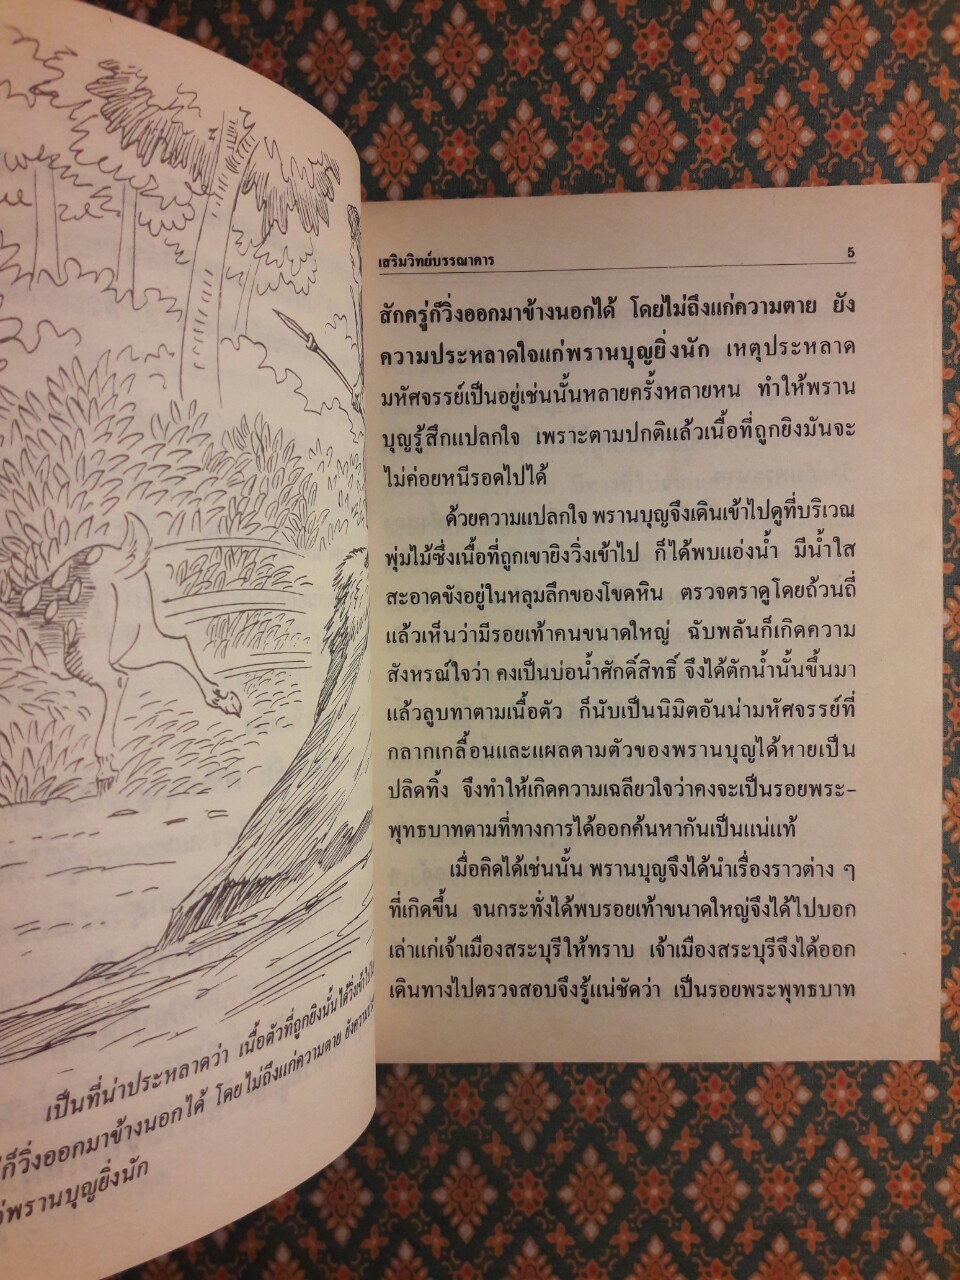 เป็นที่น่าประหลาดว่า เนื้อตัวที่ถูกยิงนั้นได้วิ่งเข้าไป
ก็วิ่งออกมาข้างนอกได้ โดยไม่ถึงแก่ความตาย ยังความ
พรานบุญยิ่งนัก
เสริมวิทย์บรรณาคาร 5
สักครู่ก็วิ่งออกมาข้างนอกได้ โดยไม่ถึงแก่ความตาย ยัง
ความประหลาดใจแก่พรานบุญยิ่งนัก เหตุประหลาด
มหัศจรรย์เป็นอยู่เช่นนั้นหลายครั้งหลายหน ทำให้พราน
บุญรู้สึกแปลกใจ เพราะตามปกติแล้วเนื้อที่ถูกยิงมันจะ
ไม่ค่อยหนีรอดไปได้
ด้วยความแปลกใจ พรานบุญจึงเดินเข้าไปดูที่บริเวณ
พุ่มไม้ซึ่งเนื้อที่ถูกเขายิงวิ่งเข้าไป ก็ได้พบแอ่งน้ำ มีน้ำใส
สะอาดขังอยู่ในหลุมลึกของโขดหิน ตรวจตราดูโดยถ้วนถี่
แล้วเห็นว่ามีรอยเท้าคนขนาดใหญ่ ฉับพลันก็เกิดความ
สังหรณ์ใจว่า คงเป็นบ่อน้ำศักดิ์สิทธิ์ จึงได้ตักน้ำนั้นขึ้นมา
แล้วลูบทาตามเนื้อตัว ก็นับเป็นนิมิตอันน่ามหัศจรรย์ที่
กลากเกลื้อนและแผลตามตัวของพรานบุญได้หายเป็น
ปลิดทิ้ง จึงทำให้เกิดความเฉลียวใจว่าคงจะเป็นรอยพระ-
พุทธบาทตามที่ทางการได้ออกค้นหากันเป็นแน่แท้
เมื่อคิดได้เช่นนั้น พรานบุญจึงได้นำเรื่องราวต่าง ๆ
ที่เกิดขึ้น จนกระทั่งได้พบรอยเท้าขนาดใหญ่จึงได้ไปบอก
เล่าแก่เจ้าเมืองสระบุรีให้ทราบ เจ้าเมืองสระบุรีจึงได้ออก
เดินทางไปตรวจสอบจึงรู้แน่ชัดว่า เป็นรอยพระพุทธบาท